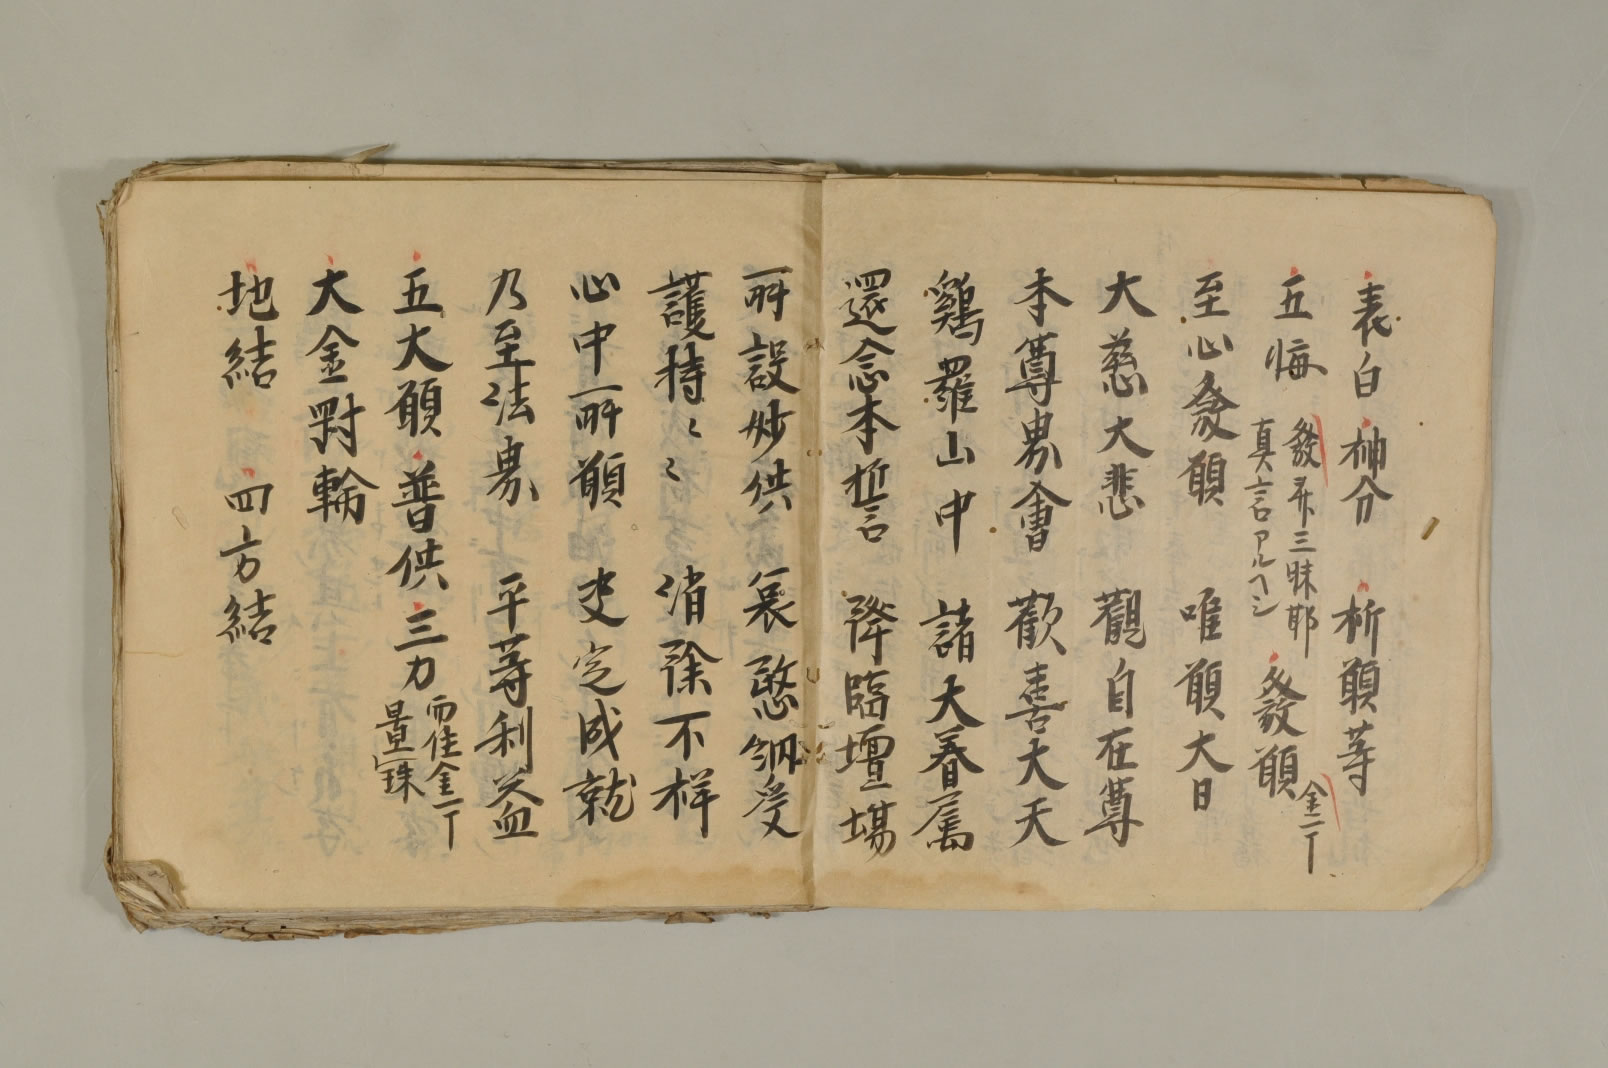 表白 神分 祈願等
五悔 發菩三昧耶
真言アルヘシ 發願 金一丁
至心發願 唯願大日
大慈大悲 觀自在尊
本尊界會 歡喜大天
鷄羅山中 諸大眷属
還念本誓 降臨壇場
所設妙供 哀愍納受
護持〻〻 消除不祥
心中所願 决定成就
乃至法界 平等利益
五大願 普供 三力 而住金一丁
量宝珠
大金剛輪
地結 四方結